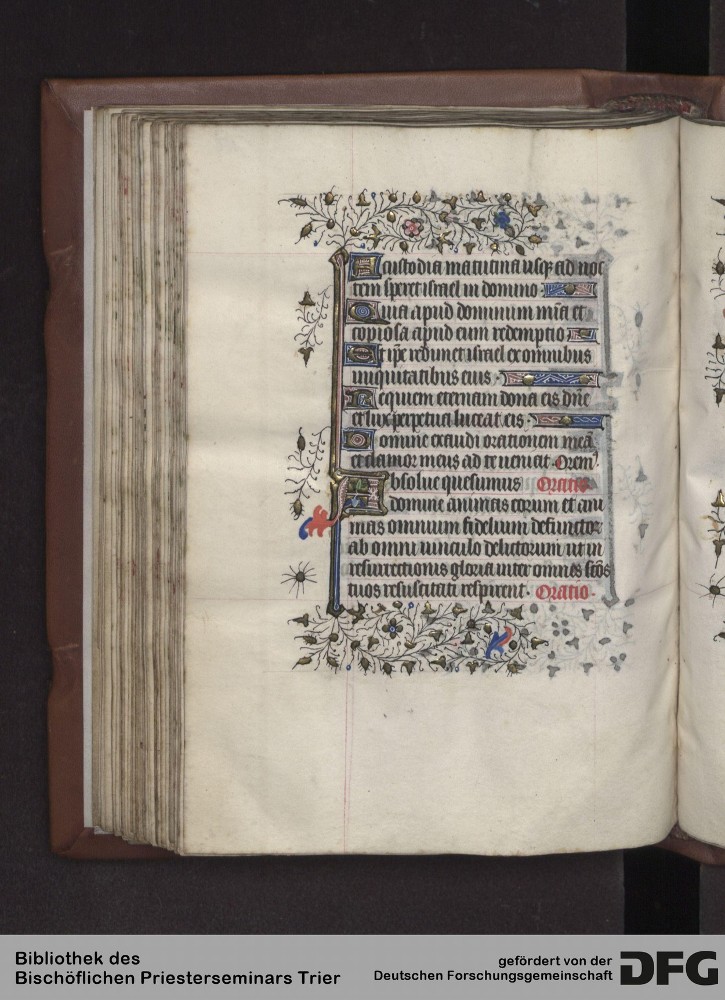 A custodia matutina usqꝫ ad noc
tem speret israel in domino
Quia apud dominum mīa et
copiosa apud eum redemptio
Et ip̄e redimet israel ex omnibus
iniquitatibus eius
Requiem eternam dona eis dn̄e
et lux perpetua luceat eis
Domine exaudi orationem meā
et clamor meus ad te veniat. Orem⁹.
Absolue quesumus Oratio
domine animas eorum et ani
mas omnium fidelium defunctor
ab omni vinculo delictorum ut in
resurrectionis gloria inter omnes sc̄os
tuos resuscitati respirent. Oratio.
Bibliothek des
Bischöflichen Priesterseminars Trier
gefördert von der
Deutschen Forschungsgemeinschaft
DFG